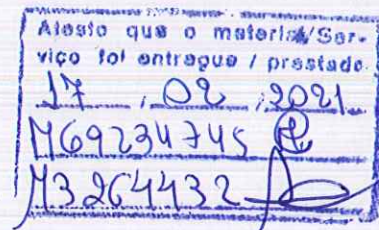 Atesto que o material/Ser-
viço foi entregue / prestado.
17 , 02 , 2021
M69234745
M3264432